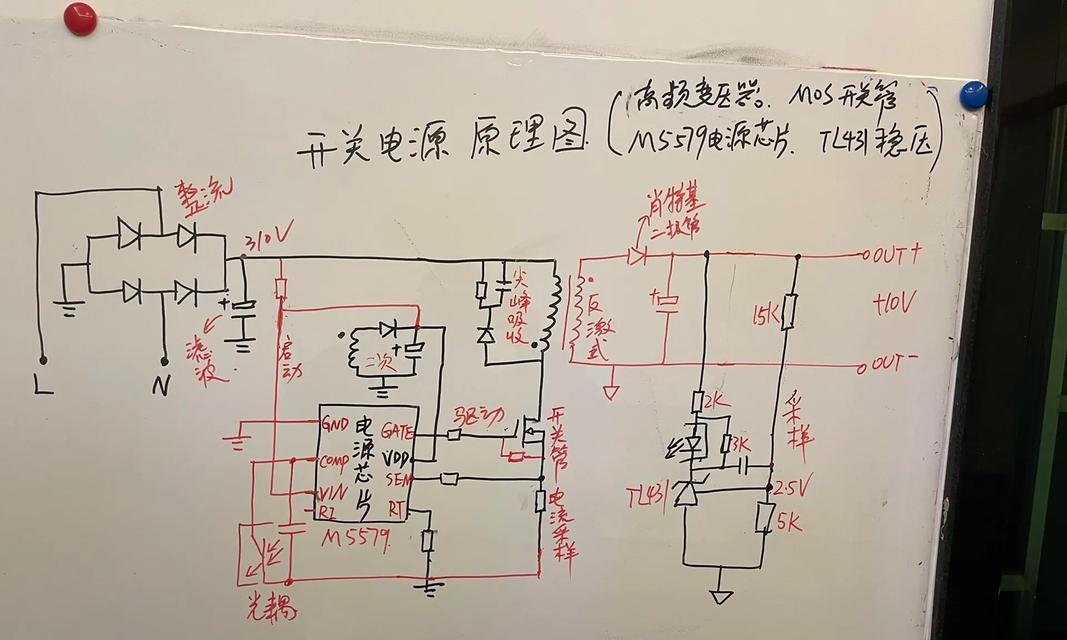 开关电源 原理图
(高频变压器. MOS开关管
M5579电源芯片. TL431稳压)
整流
310V
滤波.
L
N
启动
二次
尖峰吸收
反激式
肖特基
二极管
OUT+
+10V
OUT-
15K
采样
2K
3K
TL431
2.5V
5K
驱动
开关管
电流采样
电源芯片
GND
COMP
VIN
RI
GATE
VDD
SEN
RT
M5579.
光耦